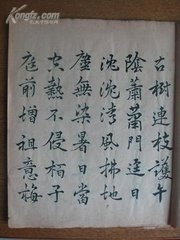 Kongfz.com
古樹連枝護午
陰蕭蕭門逕日
沈沈清風拂地
塵無染暑日當
空熱不侵栢子
庭前增祖意梅